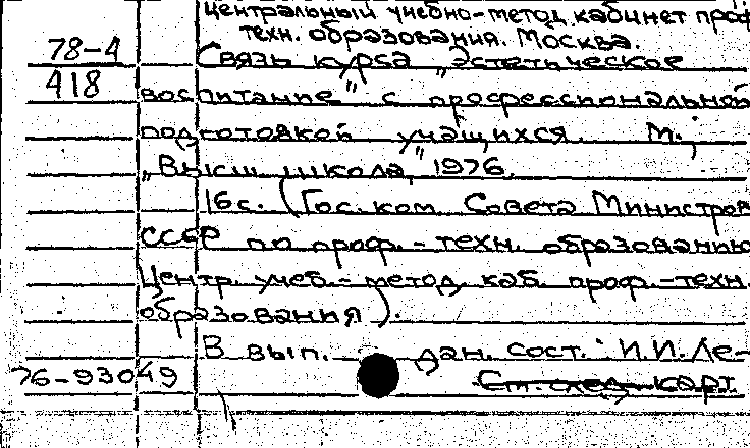 центральный учебно-метод. кабинет проф
техн. образования. Москва.
78-4
418
Связь курса „Эстетическое
воспитание" с профессиональной
подготовкой учащихся. М.,
„Высш. школа," 1976.
16 с. (Гос. ком. Совета Министров
СССР по проф.-техн. образованию
Центр. учеб.-метод. каб. проф.-техн.
образования).
В вып. дан. сост.: И.И. Ле-
76-93049
См. след. карт.